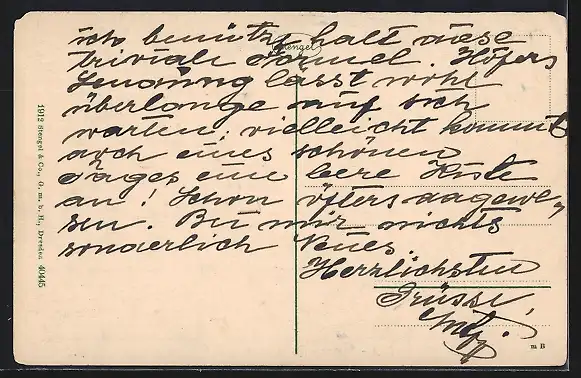 ich benütze halt diese
triviale Formel. Höfers
Sendung lässt wohl
überlange auf sich
warten; vielleicht kommt
doch eines schönen
Tages eine leere Kiste
an! Schon öfters dagewe-
sen. Bei mir nichts
sonderlich Neues.
Herzlichsten
Grüsse,
Stengel
1912 Stengel & Co., G. m. b. H., Dresden 40445
m B